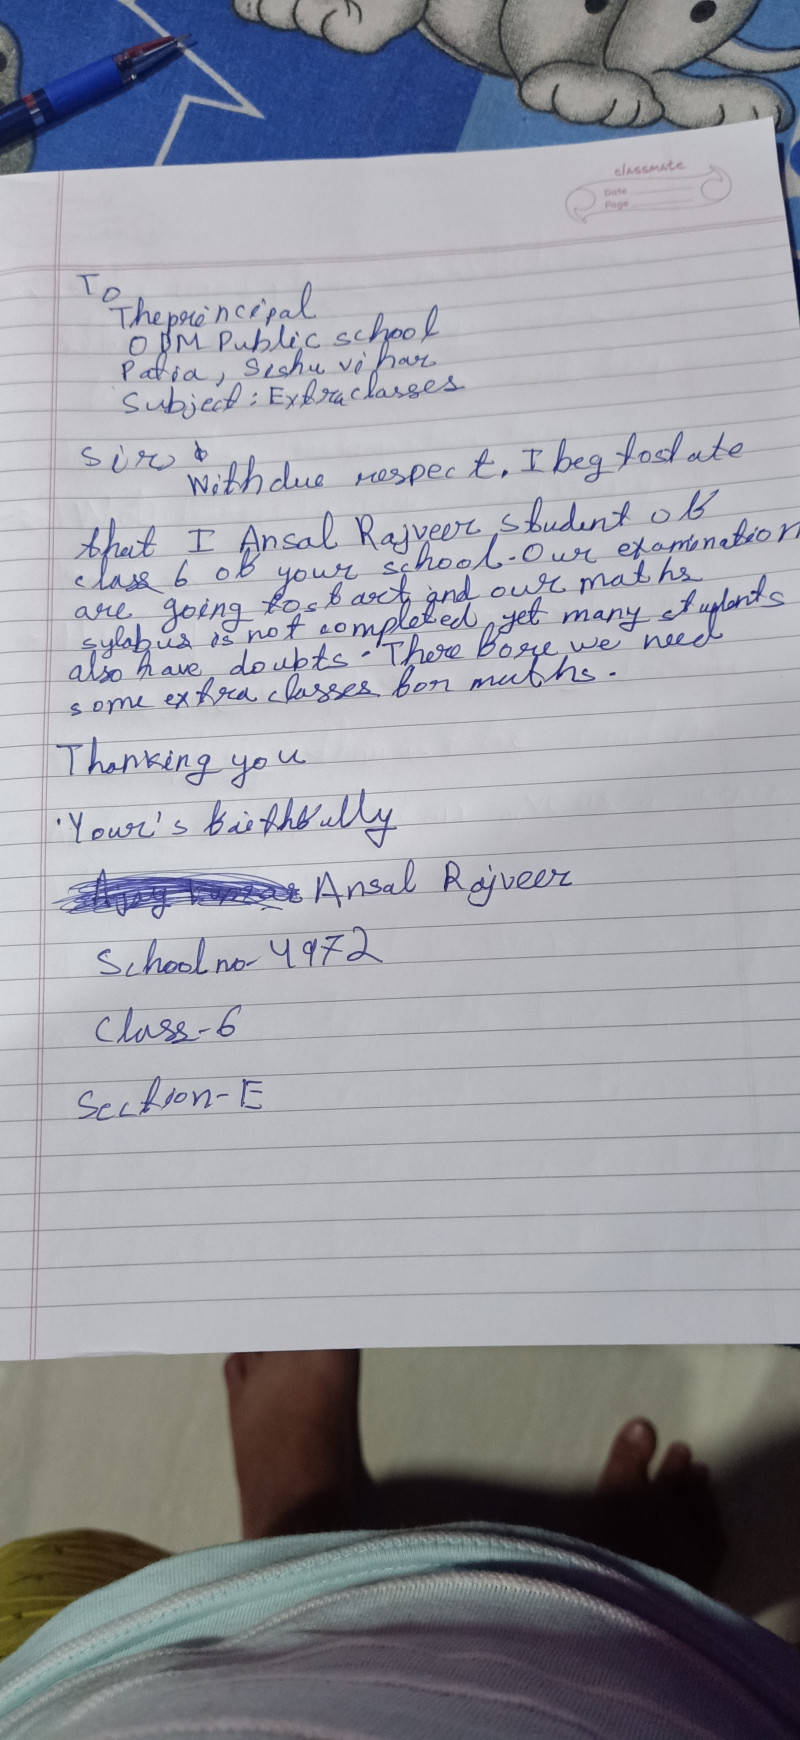 classmate
Date
Page
To
The principal
ODM Public school
Patia, Sishu vihar
Subject: Extra classes
Sir
With due respect, I beg to state
that I Ansal Rajveer, student of
class 6 of your school. Our examination
are going to start and our maths
sylabus is not completed yet many students
also have doubts. Therefore we need
some extra classes for maths.
Thanking you
Your's faithfully
Ansal Rajveer
School no- 4972
Class-6
Section-E